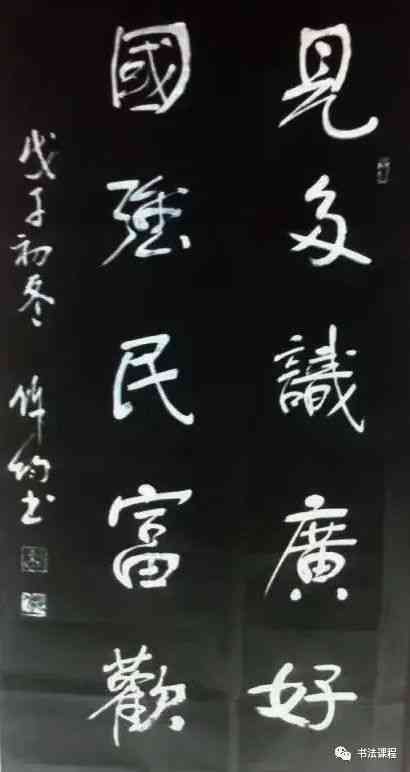 見多識廣好
國強民富歡
戊子初冬 偉均书
书法课程